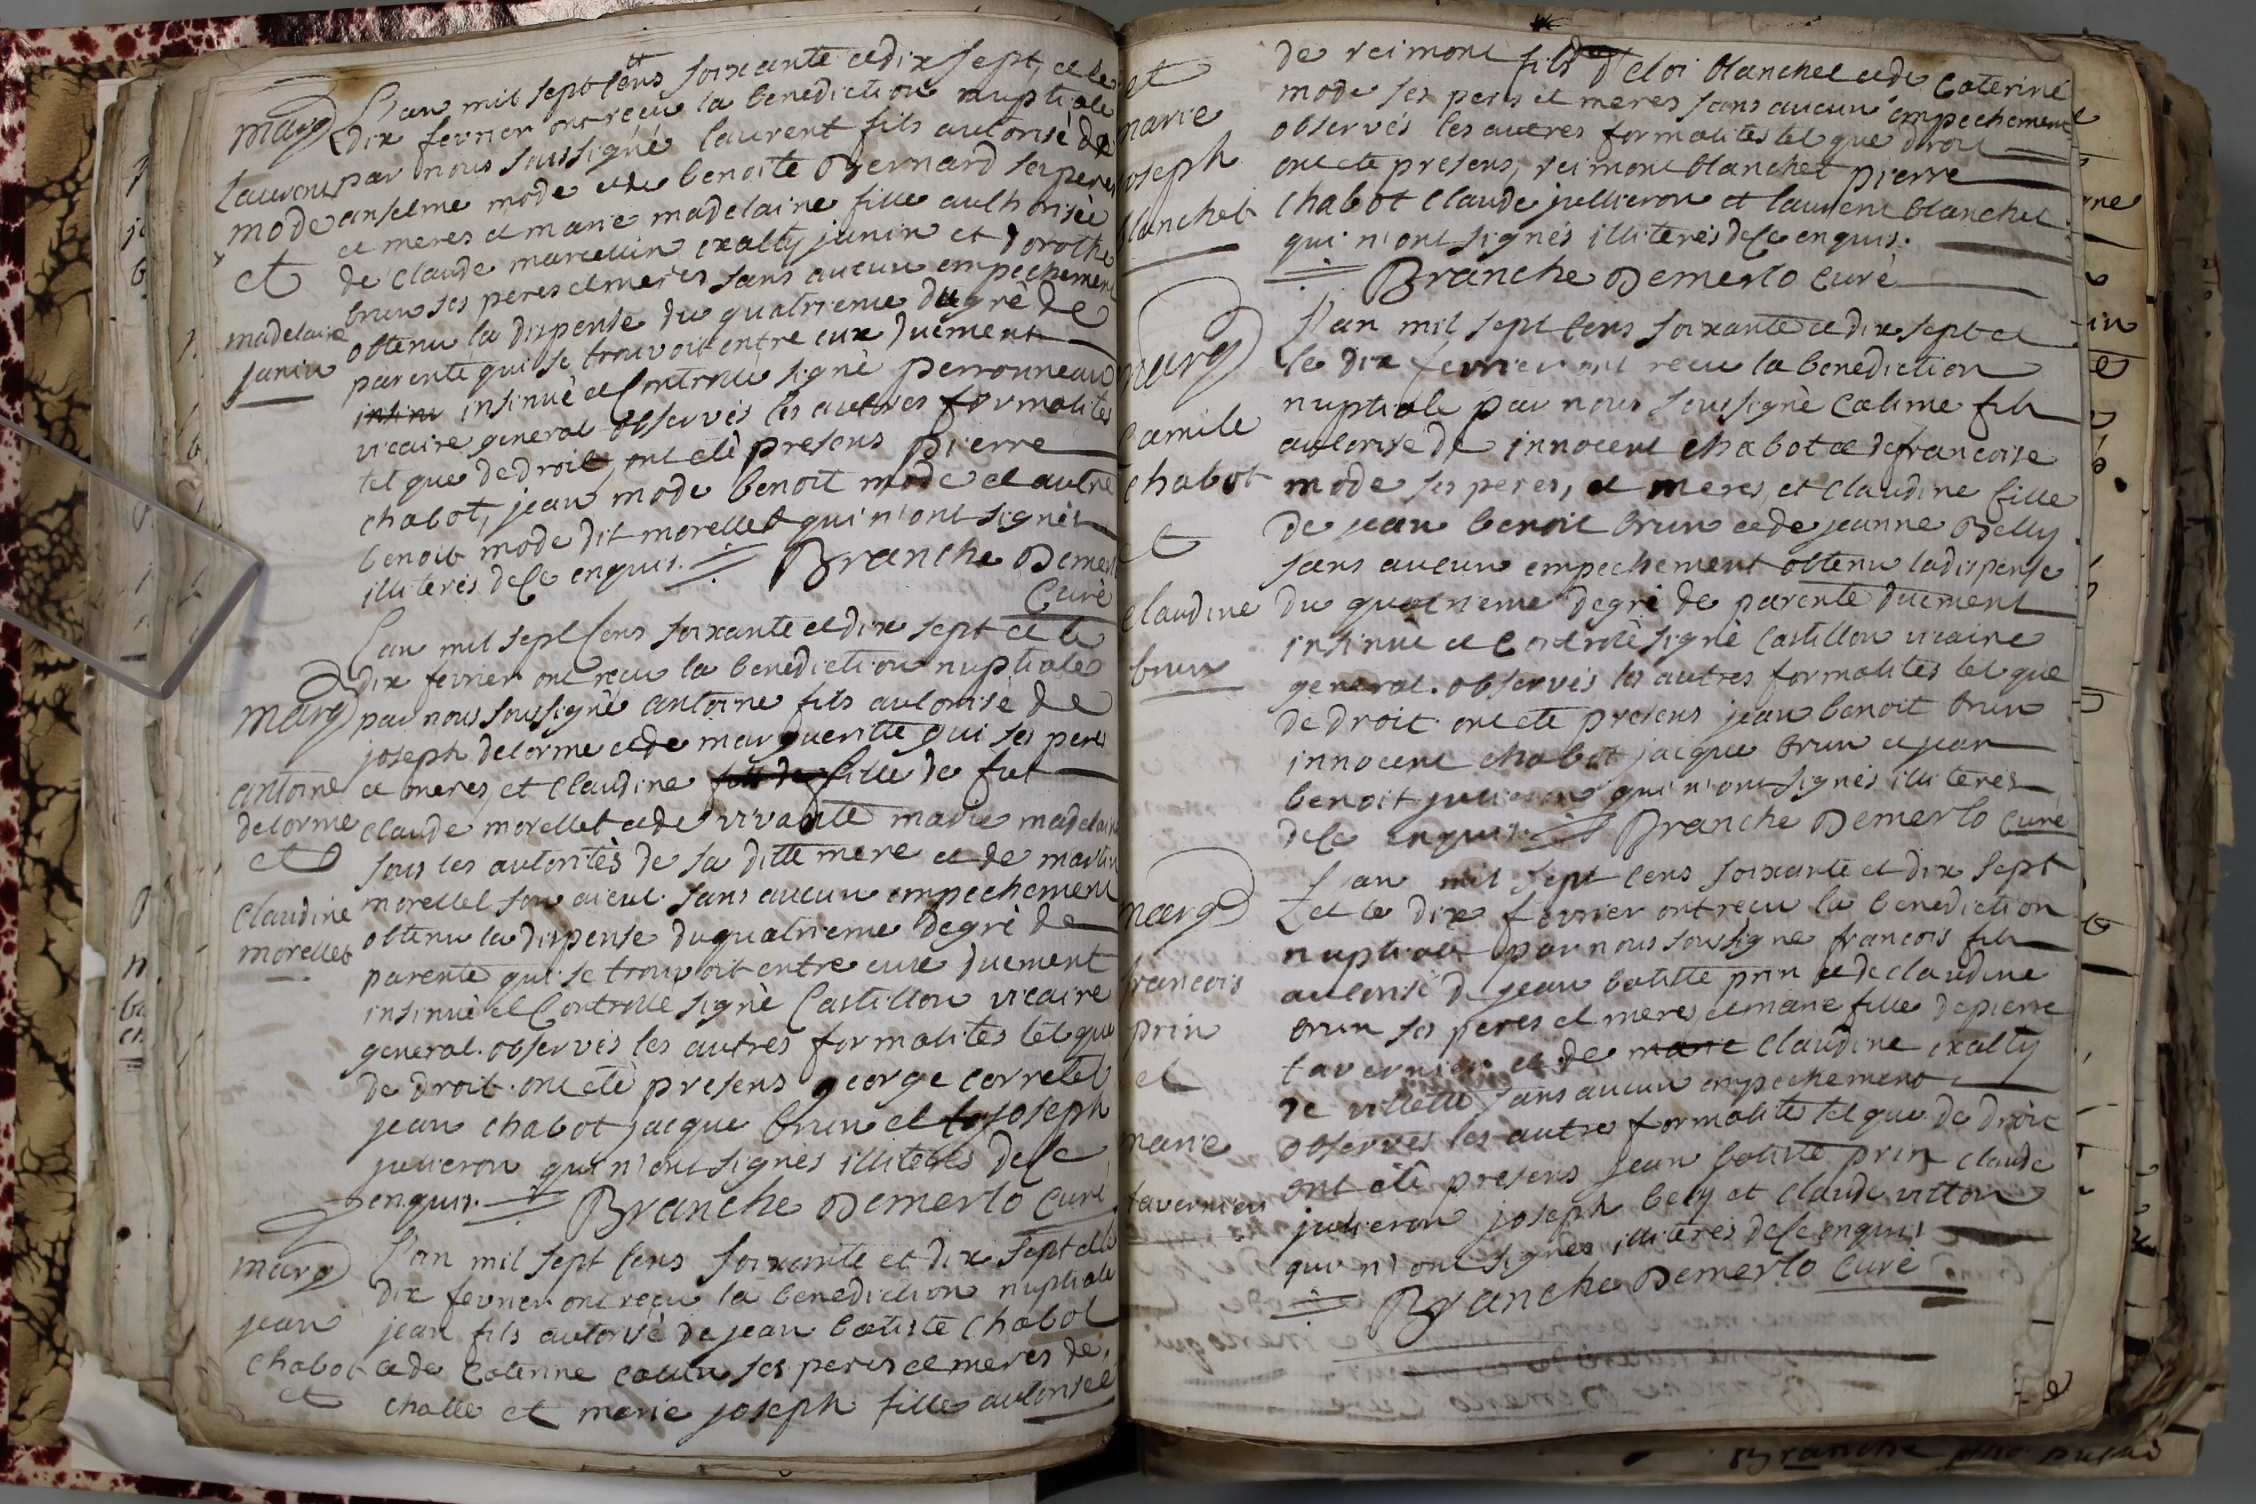 marg
Laurent
mode
et
madelaine
janin
L'an mil sept cens soixante et dix sept, et le
dix fevrier ont reçu la benediction nuptiale
par nous soussigné laurent fils autorisé de
anselme mode et de benoite Bernard ses peres
et meres et marie madelaine fille authorisée
de claude marcellin exalty janin et dorothé
brun ses peres et meres sans aucun empechement
obtenu la dispense du quatrieme degré de
parenté qui se trouvoit entre eux duëment
insinu insinué et controllé signé perronneau
vicaire general observés les autres formalites
tel que de droit, ont eté presens pierre
chabot, jean mode benoit mode et autre
benoit mode dit morellet qui n'ont signés
illiterés de ce enquis. Branche Demerlo
Curé
marg
antoine
delorme
et
claudine
morellet
L'an mil sept cens soixante et dix sept et le
dix fevrier ont reçu la benediction nuptiale
par nous soussigné antoine fils autorisé de
joseph delorme et de marguerite gui ses peres
et meres, et claudine fille de fut
claude morellet et de vivante marie madelaine
sous les autorités de sa ditte mere et de martin
morellet son aieul. sans aucun empechement
obtenu la dispense du quatrieme degré de
parente qui se trouvoit entre eux duement
insinué et controllé signé Castillon vicaire
general. observés les autres formalités tel que
de droit. ont eté presens george corretel
jean chabot jacque brun et joseph
julieron qui n'ont signés illiterés de ce
enquis. Branche Demerlo Curé
marg
jean
chabot
et
L'an mil sept cens soixante et dix sept et le
dix fevrier ont reçu la benediction nuptiale
jean fils autorisé de jean batiste chabot
et de Caterine ses peres et meres de
challe et marie joseph fille autorisée
et
marie
joseph
blanchet
de reimont fils d'eloi blanchet et de Caterine
mode ses peres et meres sans aucun empechement
observés les autres formalités tel que droit
ont eté presens, reimont blanchet pierre
chabot claude jullieron et laurent blanchet
qui n'ont signés illiterés de ce enquis.
Branche Demerlo Curé
marg
camile
chabot
et
claudine
brun
L'an mil sept cens soixante et dix sept et
le dix fevrier ont recu la benediction
nuptiale par nous soussigné calime fils
autorisé de innocent chabot et de francoise
mode ses peres, et meres, et claudine fille
de jean benoit brun et de jeanne Belly
sans aucun empechement obtenu la dispense
du quatrieme degré de parenté duëment
insinué et controlé signé Castillon vicaire
general. observés les autres formalités tel que
de droit. ont eté presens jean benoit brun
innocent chabot jacque brun et jean
benoit julieron qui n'ont signés illiterés
de ce enquis. Branche Demerlo Curé
marg
francois
prin
et
marie
tavernier
L'an mil sept cens soixante et dix sept
et le dix fevrier ont recu la benediction
nuptiale par nous soussigné francois fils
autorisé de jean batiste prin et de claudine
brun ses peres et meres, et marie fille de pierre
tavernier et de marie claudine exalty
de villette sans aucun empechement
observés les autre formalité tel que de droit
ont eté presens jean batiste prin claude
julieron joseph bely et claude vitton
qui n'ont signés illiterés de ce enquis
Branche Demerlo Curé